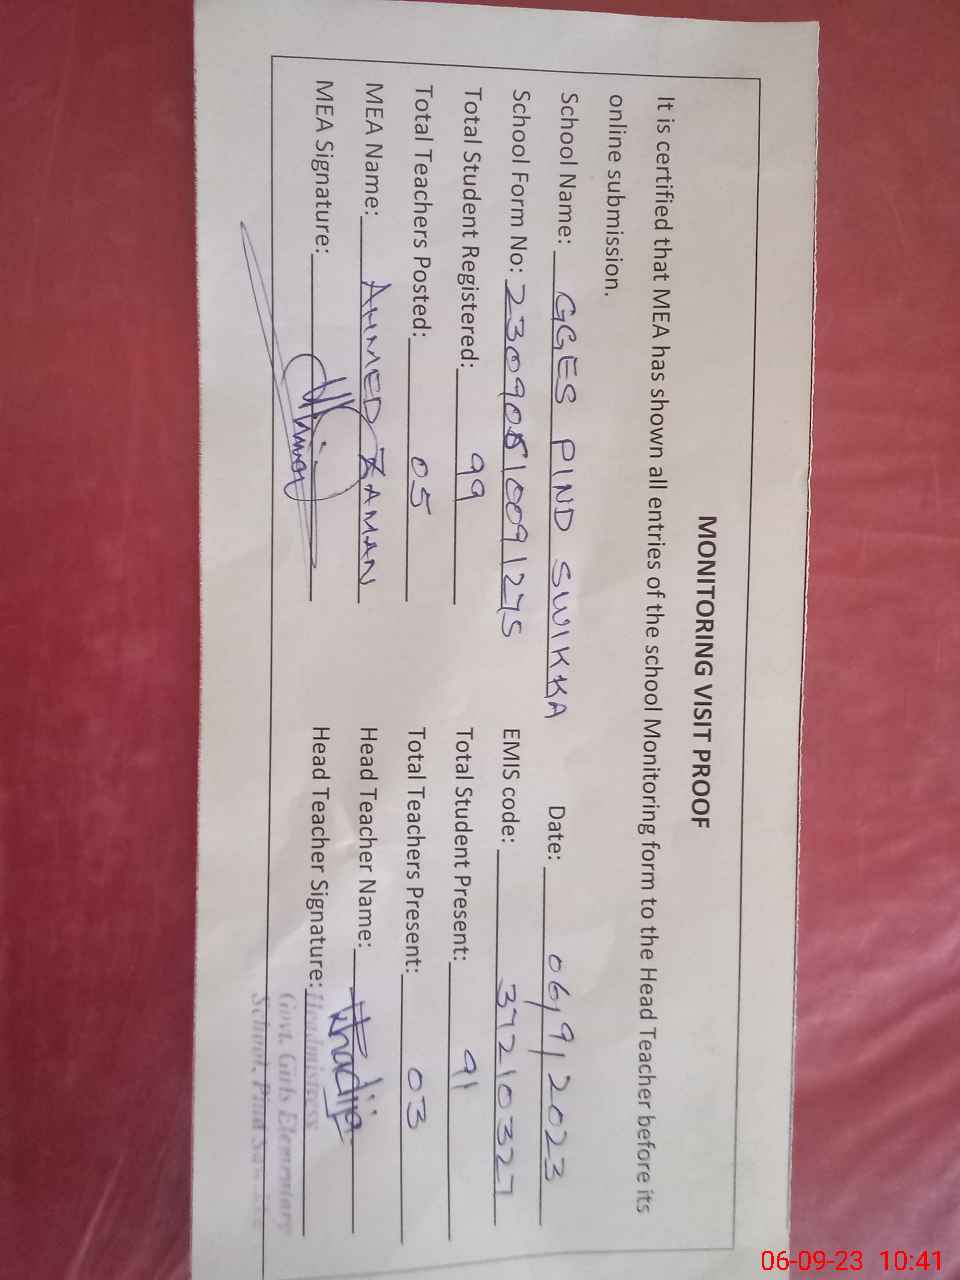 MONITORING VISIT PROOF
It is certified that MEA has shown all entries of the school Monitoring form to the Head Teacher before its
online submission.
School Name: GGES PIND SWIKKA Date: 06/9/2023
School Form No: EMIS code: 37210327
Total Student Registered: 99 Total Student Present: 91
Total Teachers Posted: 05 Total Teachers Present: 03
MEA Name: AHMED ZAMAN Head Teacher Name: Khadija
MEA Signature: Head Teacher Signature: Headmistress
Govt. Girls Elementary
School, Pind
06-09-23 10:41